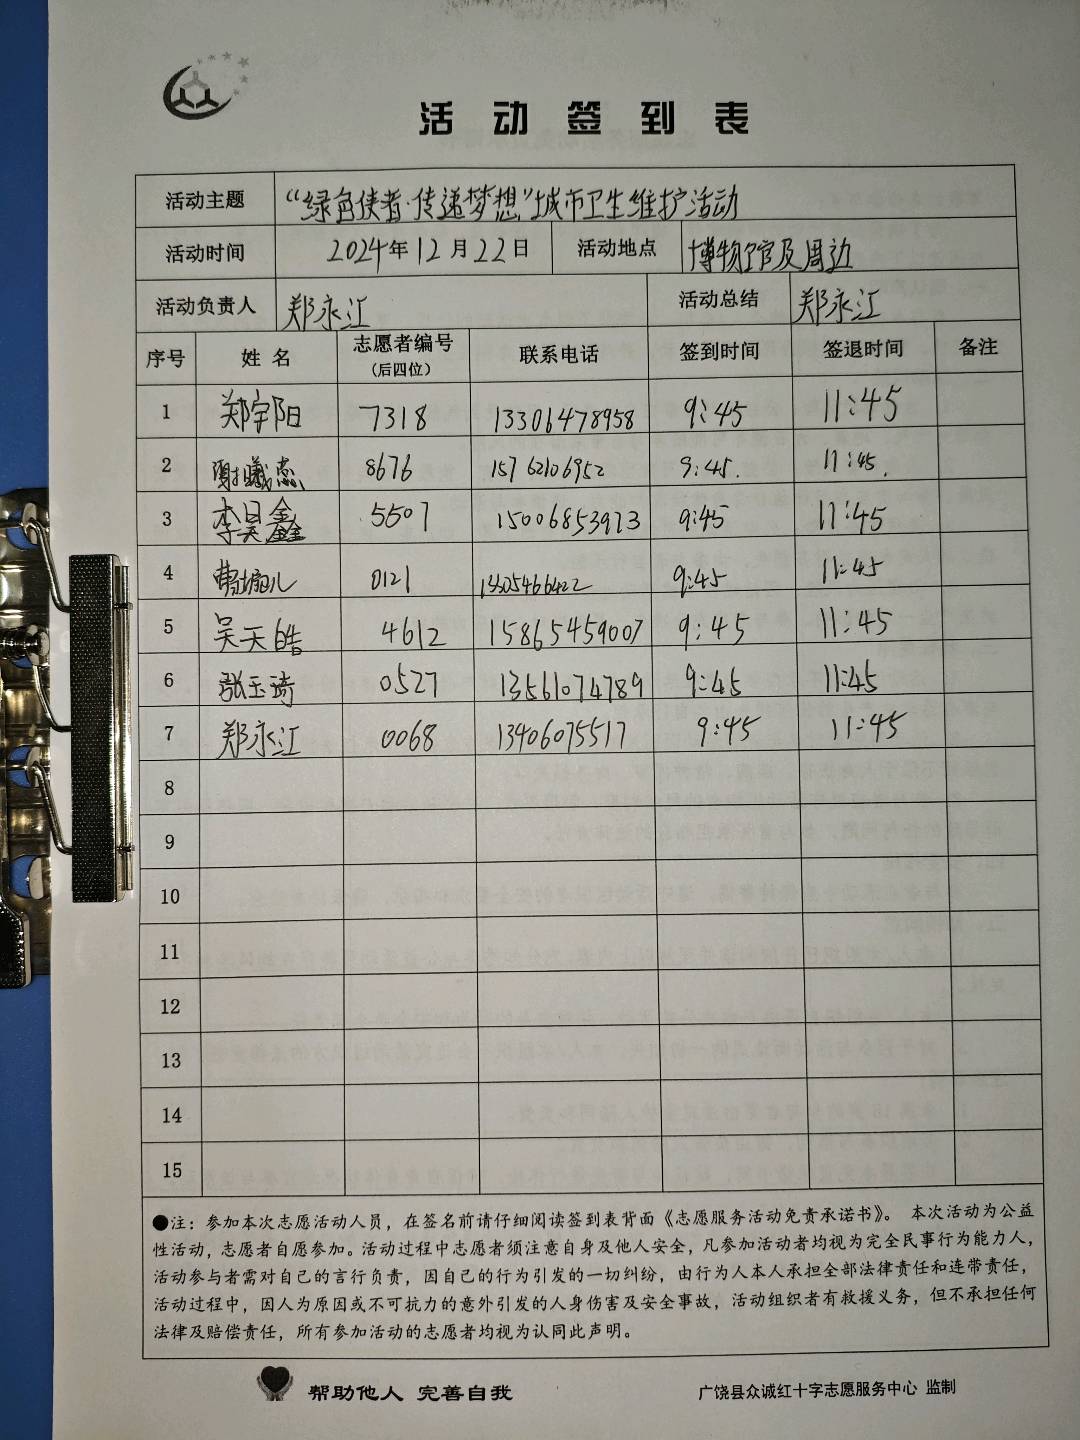 活动签到表
活动主题 “绿色使者·传递梦想”城市卫生维护活动
活动时间 2024年12月22日 活动地点 博物馆及周边
活动负责人 郑永江 活动总结 郑永江
序号 姓名 志愿者编号（后四位） 联系电话 签到时间 签退时间 备注
1 郑宇阳 7318 13306478958 9:45 11:45
2 谢曦蕊 8676 15762106952 9:45. 11:45.
3 李昊鑫 5507 15006853973 9:45 11:45
4 0121 9:45 11:45
5 吴天皓 4612 15865459007 9:45 11:45
6 张玉琦 0527 13561074789 9:45 11:45
7 郑永江 0068 13406075517 9:45 11:45
8
9
10
11
12
13
14
15
●注：参加本次志愿活动人员，在签名前请仔细阅读签到表背面《志愿服务活动免责承诺书》。本次活动为公益
性活动，志愿者自愿参加。活动过程中志愿者须注意自身及他人安全，凡参加活动者均视为完全民事行为能力人，
活动参与者需对自己的言行负责，因自己的行为引发的一切纠纷，由行为人本人承担全部法律责任和连带责任，
活动过程中，因人为原因或不可抗力的意外引发的人身伤害及安全事故，活动组织者有救援义务，但不承担任何
法律及赔偿责任，所有参加活动的志愿者均视为认同此声明。
帮助他人 完善自我 广饶县众诚红十字志愿服务中心 监制